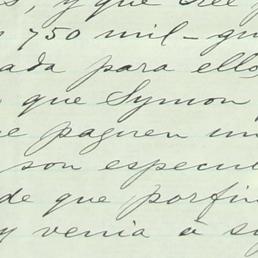 y que
750 mil - qu
ada para ello
que Symon
e paguen un
son especu
de que porfin
y venia à